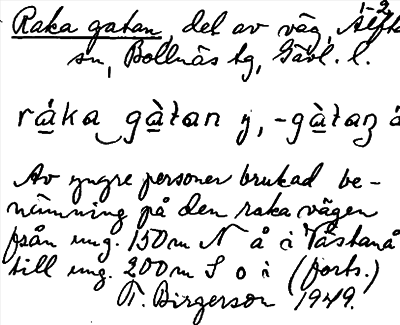 Raka gatan, det av väg, Alfta
sn, Bollnäs tg, Gävl. l.
ráka gàtan y, -gàtaṇ
Av yngre personer brukad be-
nämning på den raka vägen
från ung. 150 m N å i Västanå
till ung. 200 m S o i (forts.)
T. Birgerson 1949.